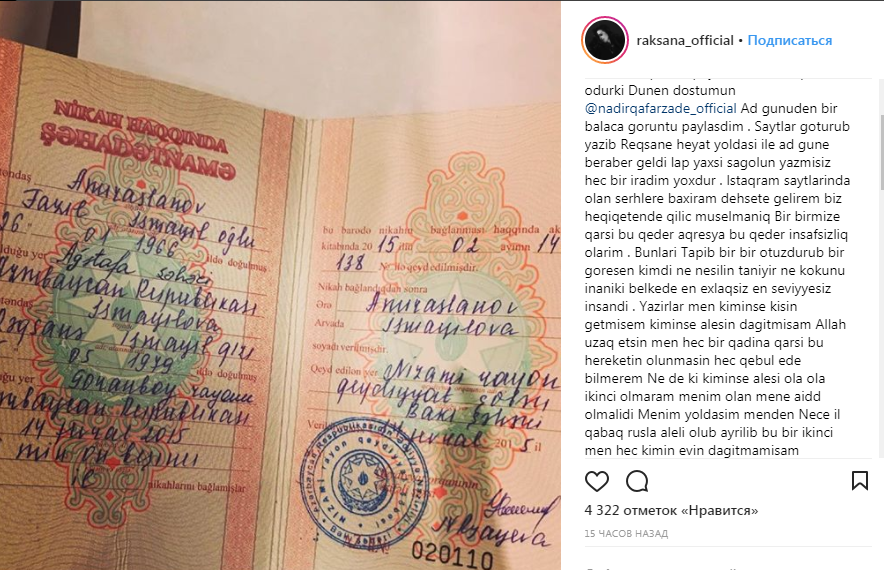 NİKAH HAQQINDA
ŞƏHADƏTNAMƏ
Amıraslanov
Fazil İsmayıl oğlu
26 01 1966 ildə doğulmuş
Ağstafa şəhəri
Azərbaycan Respublikası
İsmayılova
Rəqsanə İsmayıl qızı
05 1979 ildə doğulmuş
Goranboy rayonu
Azərbaycan Respublikası
14 fevral 2015
min on beşinci
ildə
nikahlarını bağlamışlar
bu barədə nikahın bağlanması haqqında akt
kitabında 2015 ilin 02 ayının 14
138 № ilə qeyd edilmişdir.
Nikah bağlandıqdan sonra
Ərə Amıraslanov
Arvada İsmayılova
soyadı verilmişdir.
Qeyd edilən yer Nizami rayon
qeydiyyat şöbəsi
Bakı şəhəri
fevral 2015 il
020110
raksana_official • Подписаться
odurki Dunen dostumun
@nadirqafarzade_official Ad gunuden bir
balaca goruntu paylasdim . Saytlar goturub
yazib Reqsane heyat yoldasi ile ad gune
beraber geldi lap yaxsi sagolun yazmisiz
hec bir iradim yoxdur . Istaqram saytlarinda
olan serhlere baxiram dehsete gelirem biz
heqiqetende qilic muselmaniq Bir birmize
qarsi bu qeder aqresya bu qeder insafsizliq
olarim . Bunlari Tapib bir bir otuzdurub bir
goresen kimdi ne nesilin taniyir ne kokunu
inaniki belkede en exlaqsiz en seviyyesiz
insandi . Yazirlar men kiminse kisin
getmisem kiminse alesin dagitmisam Allah
uzaq etsin men hec bir qadina qarsi bu
hereketin olunmasin hec qebul ede
bilmerem Ne de ki kiminse alesi ola ola
ikinci olmaram menim olan mene aidd
olmalidi Menim yoldasim menden Nece il
qabaq rusla aleli olub ayrilib bu bir ikinci
men hec kimin evin dagitmamisam
4 322 отметок «Нравится»
15 ЧАСОВ НАЗАД